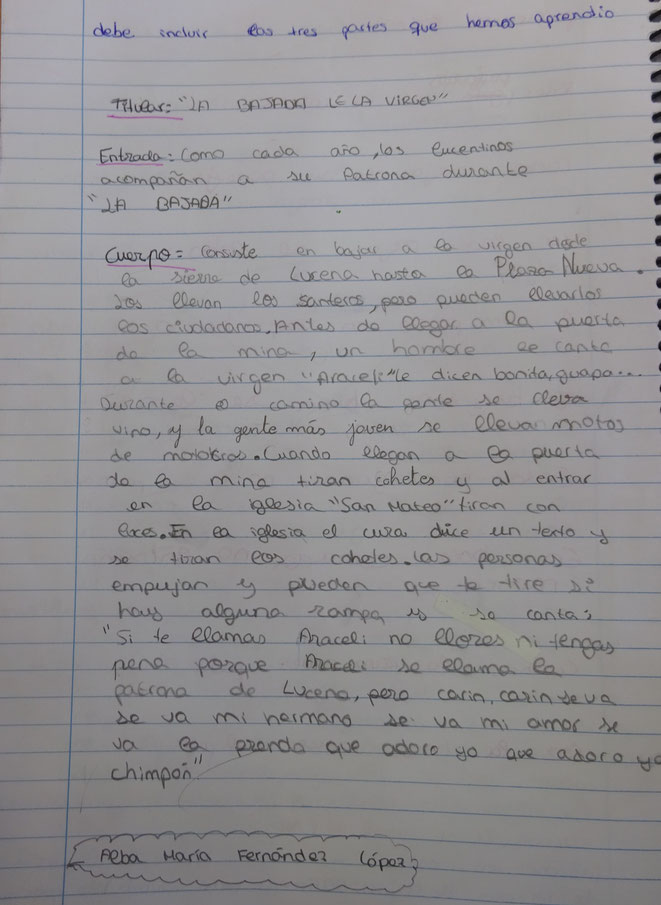 debe incluir las tres partes que hemos aprendio
Titular: "LA BAJADA DE LA VIRGEN"
Entrada: Como cada año, los lucentinos
acompañan a su Patrona durante
"LA BAJADA"
Cuerpo = Consiste en bajar a la virgen desde
la sierra de Lucena hasta la Plaza Nueva.
Los llevan los santeros, pero pueden llevarlos
los ciudadanos. Antes de llegar a la puerta
de la mina, un hombre le canta
a la virgen "Araceli" le dicen bonita, guapa...
Durante el camino la gente se lleva
vino, y la gente más joven se lleva motos
de motocros. Cuando llegan a la puerta
de la mina tiran cohetes y al entrar
en la iglesia "San Mateo" tiran con
luces. En la iglesia el cura dice un texto y
se tiran los cohetes. las personas
empujan y pueden que te tire si
hay alguna rampa y se canta:
"Si te llamas Araceli no llores ni tengas
pena porque Araceli se llama la
patrona de Lucena, pero carin, carin se va
se va mi hermano se va mi amor se
va la prenda que adoro yo que adoro yo
chimpon"
Alba María Fernández López